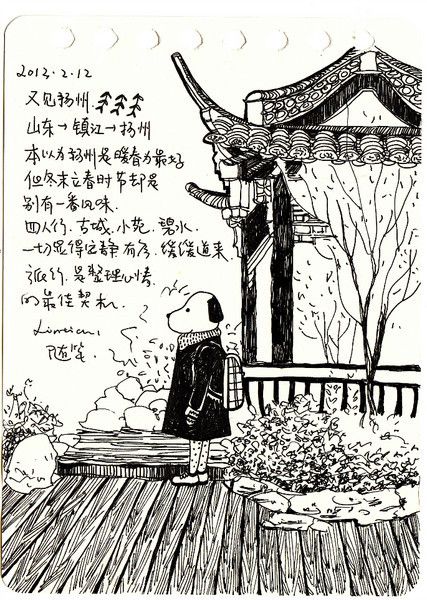 2012.2.12
又见扬州.
山东→镇江→扬州
本以为扬州是暖春为最好
但冬末立春时节却是
别有一番风味.
四人行.古城.小苑.碧水.
一切显得宁静有序.缓缓道来
旅行.是整理心情.
的最佳契机.
随笔.